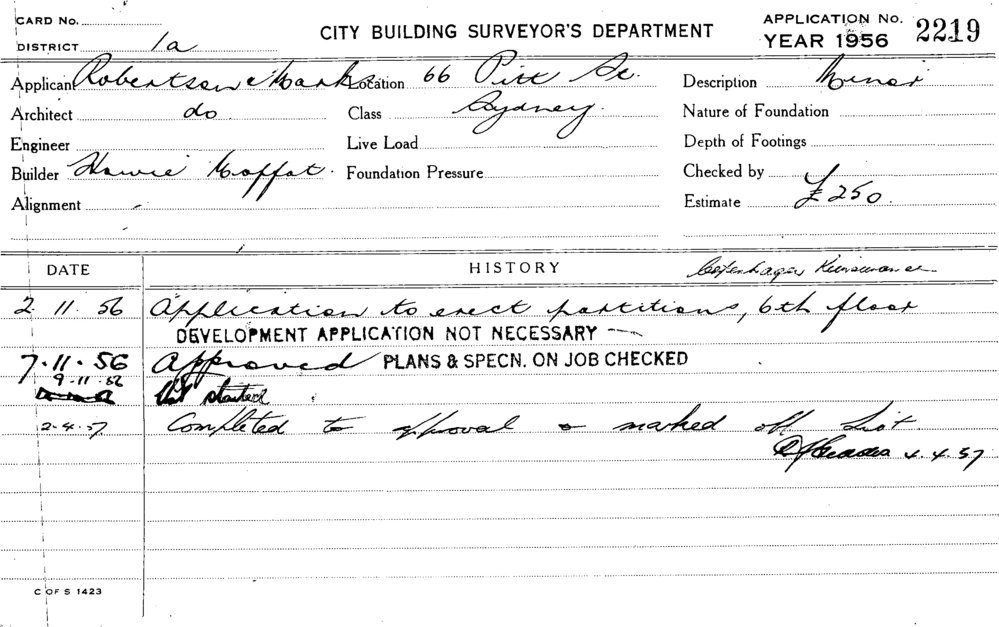 CARD No.
DISTRICT 1a
CITY BUILDING SURVEYOR'S DEPARTMENT
APPLICATION No. 2219
YEAR 1956
Applicant Robertson & Marks Location 66 Pitt St. Description Minor
Architect do Class Sydney. Nature of Foundation
Engineer Live Load Depth of Footings
Builder Howie Moffat. Foundation Pressure Checked by
Alignment - Estimate £250.
DATE HISTORY Copenhagen
2. 11. 56 Application to erect partitions, 6th floor
DEVELOPMENT APPLICATION NOT NECESSARY
7.11.56 Approved PLANS & SPECN. ON JOB CHECKED
9.11.56 Not started
2.4.57 Completed to approval & marked off List.
4.4.57
C OF S 1423